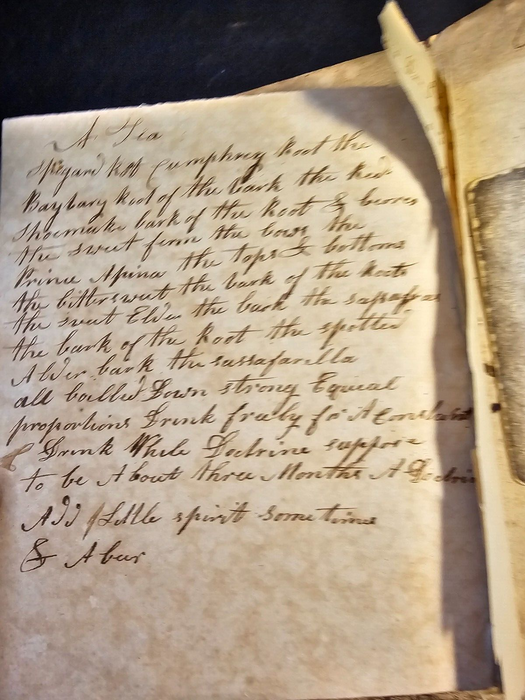 A Tea
Spigard Root Cumphrey Root the
Baybary Root of the bark the Red
Shoemake bark of the Root & beores
the sweet fern the bows the
Prince Apina the tops & bottoms
the bittersweet the bark of the Roots
the sweet Elder the bark the sassafras
the bark of the Root the spotted
Alder bark the sassafarella
all boilled Down strong Equeal
proportions Drink freely for A Constant
Drink While Doctrine suppose
to be About three Months A Doctrin
Add Little spirit sometimes
& A beer